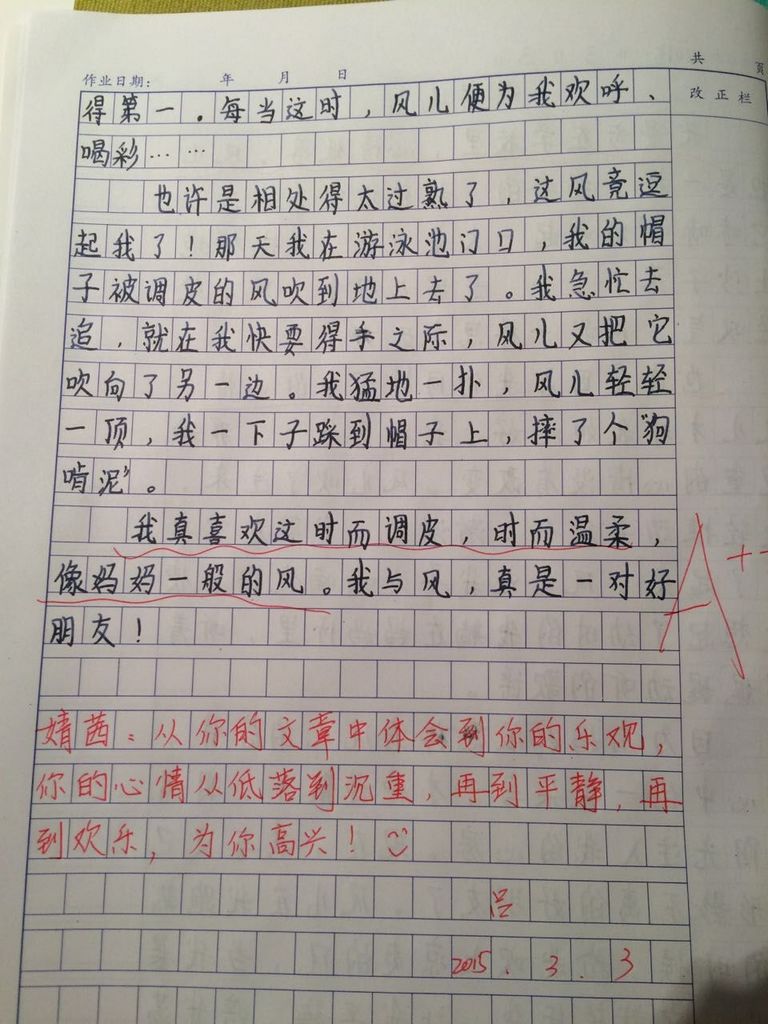 共 页
作业日期： 年 月 日
改正栏
得第一。每当这时，风儿便为我欢呼、
喝彩……
也许是相处得太过熟了，这风竟逗
起我了！那天我在游泳池门口，我的帽
子被调皮的风吹到地上去了。我急忙去
追，就在我快要得手之际，风儿又把它
吹向了另一边。我猛地一扑，风儿轻轻
一顶，我一下子踩到帽子上，摔了个“狗
啃泥”。
我真喜欢这时而调皮，时而温柔，
像妈妈一般的风。我与风，真是一对好
朋友！
A++
婧茜：从你的文章中体会到你的乐观，
你的心情从低落到沉重，再到平静，再
到欢乐，为你高兴！
吕
2015.3.3